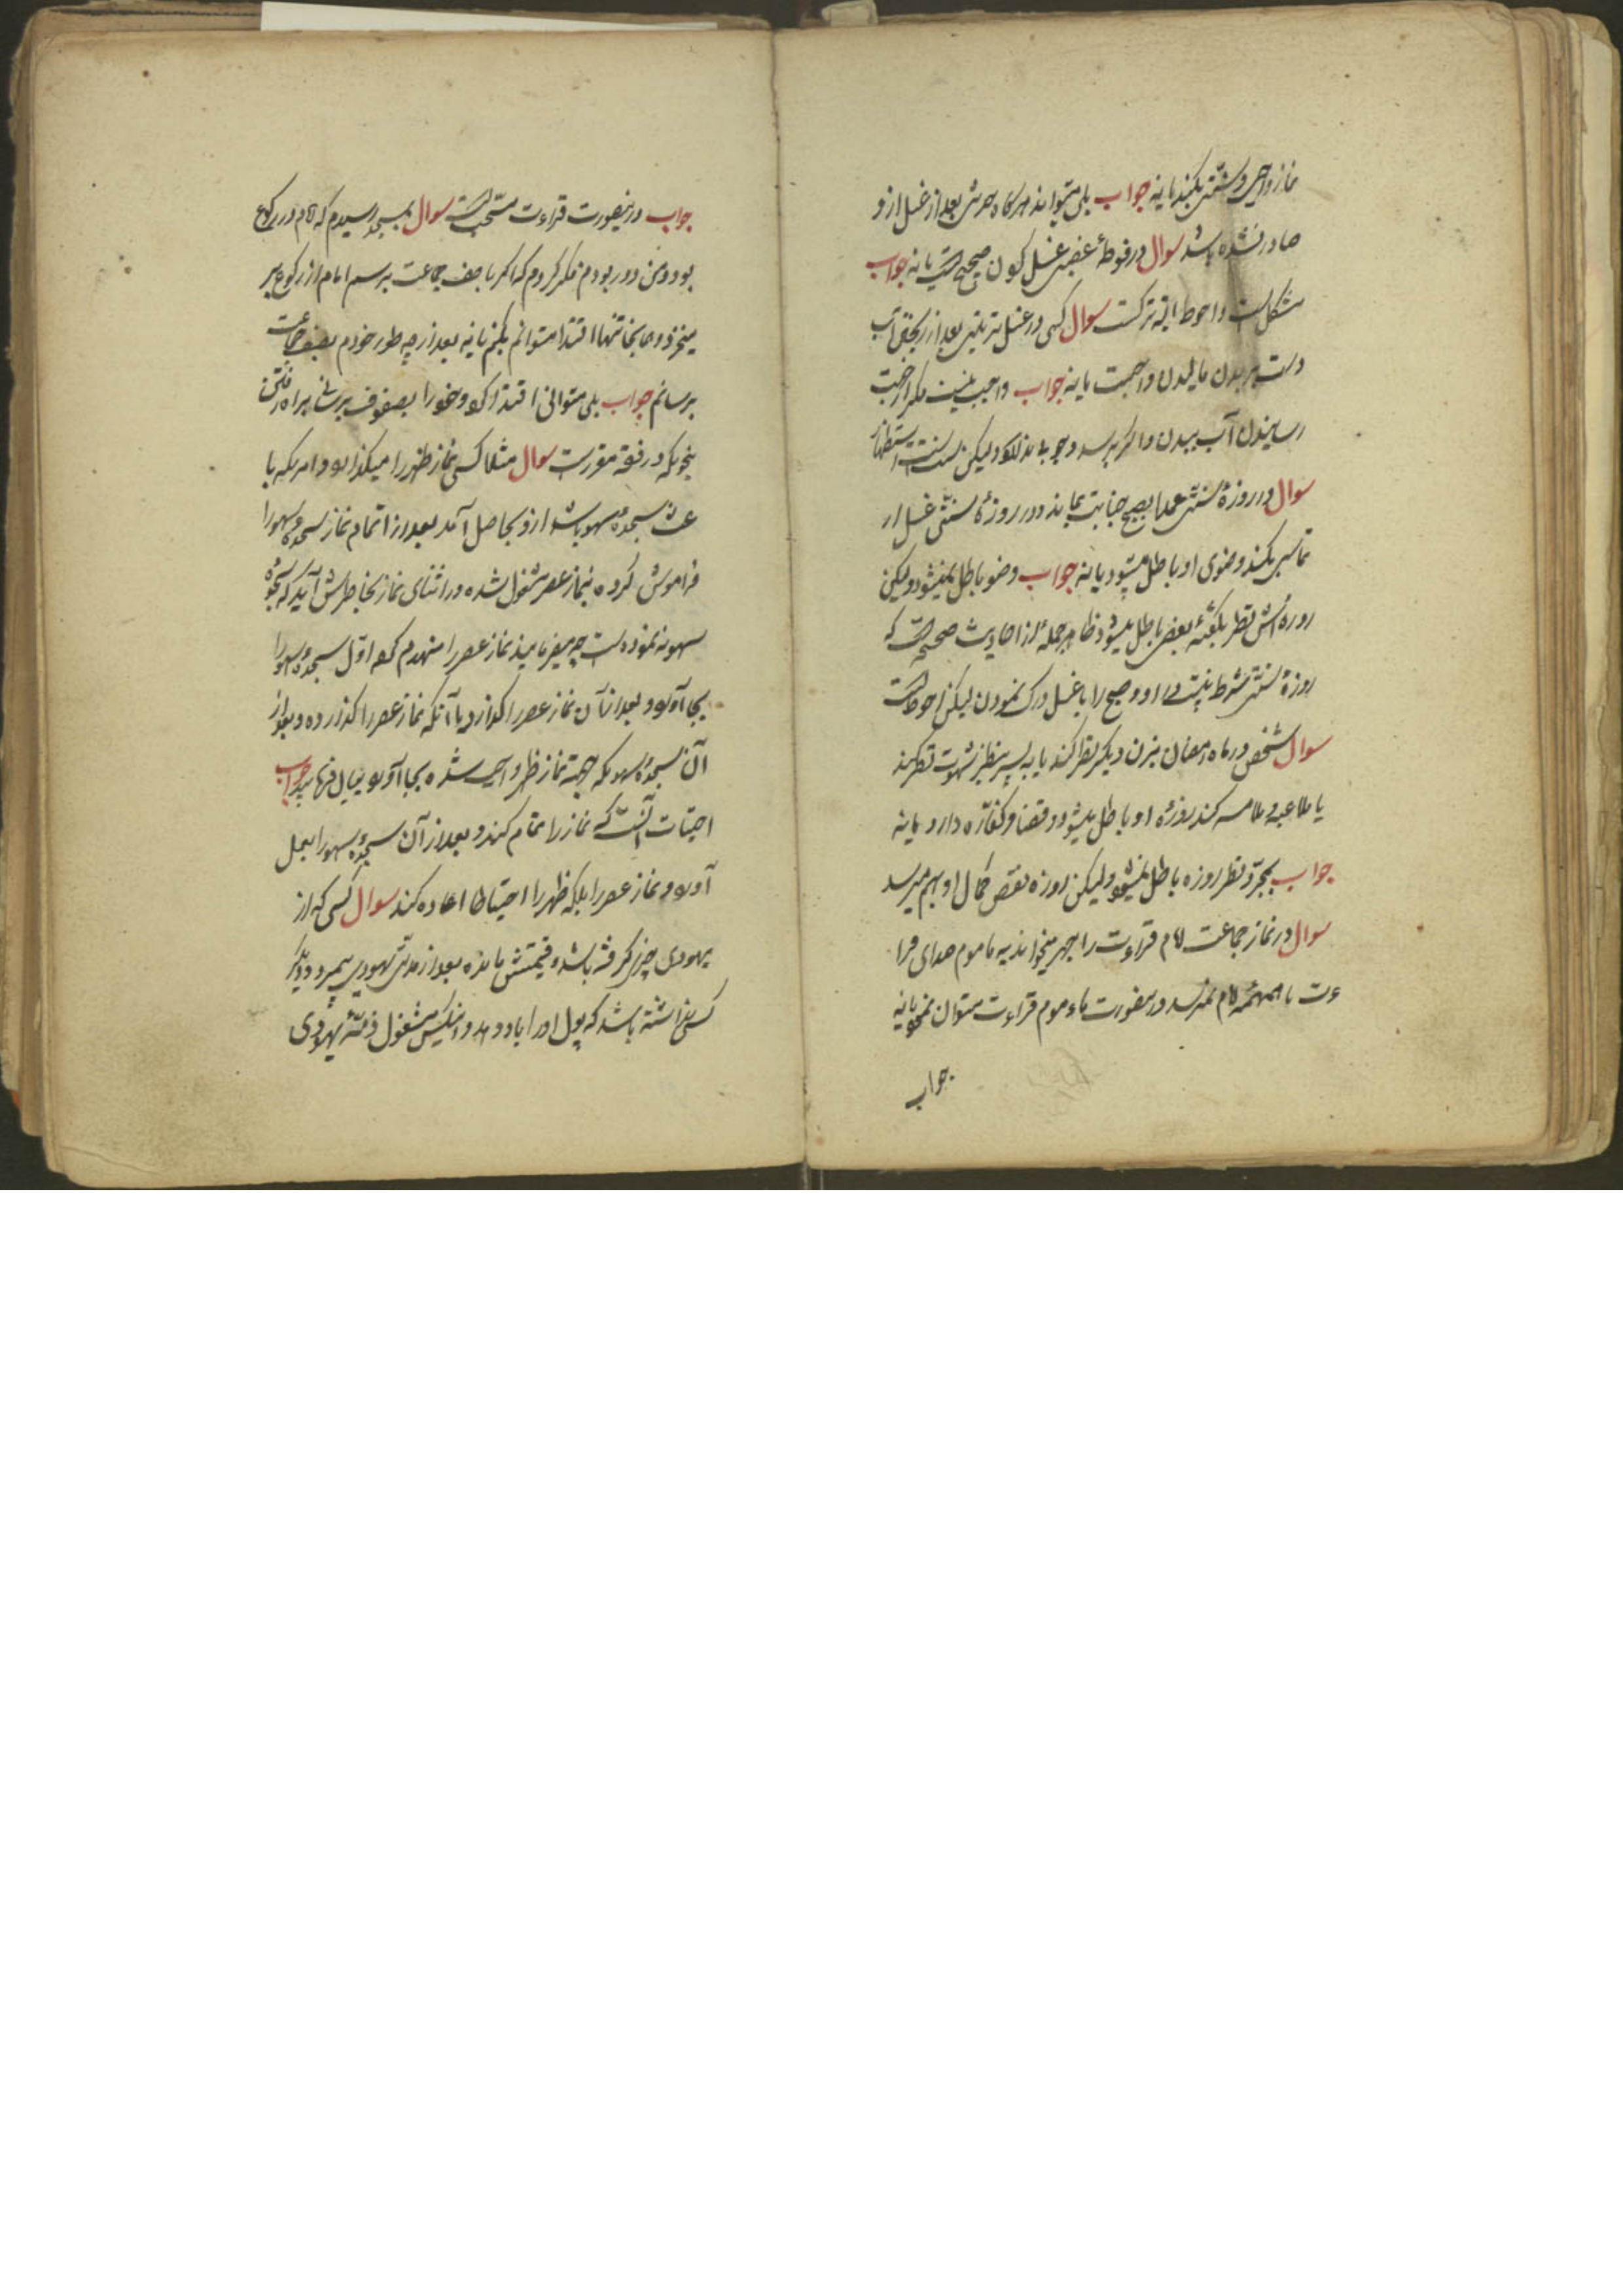 نماز واجبی و سنتی بکند یا نه جواب بلی میتواند هرگاه حدثی بعد از غسل ازو
صادر نشده باشد سوال در فوطهٔ غصبی غسل کردن صحیح است یا نه جواب
مشکل است و احوط البته ترکست سوال کسی در غسل ترتیبی بعد از ریختن آب
دست بر بدن مالیدن واجبست یا نه جواب واجب نیست مگر از جهت
رسانیدن آب ببدن و اگر برسد وجوب ندارد ولیکن سنت است استظهار
سوال در روزهٔ سنتی عمدا بصبح جنابت بماند و در روزهٔ سنتی غسل ار
تماسی بکند وضوی او باطل میشود یا نه جواب وضو باطل نمیشود ولیکن
روزه‌اش نظر بگفتهٔ بعضی باطل میشود ظاهر جمله از احادیث صحیحه است که
روزهٔ سنتی مشروط نیست در او و صبح را با غسل درک نمودن لیکن احوط است
سوال شخصی در ماه رمضان بزن دیگر نظر کند یا به پسر بنظر شهوت نظر کند
یا ملاعبه و ملامسه کند روزهٔ او باطل میشود و قضا و کفاره دارد یا نه
جواب بمجرد نظر روزه باطل نمیشود ولیکن روزه نقص کمال او بهم میرسد
سوال در نماز جماعت امام قراءت را بجهر میخواند به ماموم صدای قرا
ءت یا همهمهٔ امام نمیرسد درینصورت ماءموم قراءت میتواند بخواند یا نه
جواب
جواب درینصورت قراءت مستحب است سوال بمسجد رسیدم که امام در رکوع
بود و من دور بودم فکر کردم که اگر با صف جماعت برسم امام از رکوع بر
میخیزد و همانجا تنها اقتدا میتوانم بکنم یا نه بعد از چه طور خودم بصف جماعت
برسانم جواب بلی میتوانی اقتدا کرد و خود را بصفوف برسانی براه رفتن
بنحویکه در فقه مقررست سوال مثلا کسی نماز ظهر را میگذارد و امریکه با
عث سجدهٔ سهو باشد ازو بحاصل آمد بعد از اتمام نماز سجدهٔ سهو را
فراموش کرده بنماز عصر مشغول شده در اثنای نماز بخاطرش آید که سجدهٔ
سهو ننموده است چه میفرمایند نماز عصر را منهدم کرده اول سجدهٔ سهو را
بجا آورد و بعد از آن نماز عصر را گذارد یا آنکه نماز عصر را گذارده و بعد از
آن سجدهٔ سهو که جهة نماز ظهر واجب شده بجا آورد بیان فرمایید جواب
احتیات آنست که نماز را تمام کند و بعد از آن سجدهٔ سهو را بعمل
آورد و نماز عصر را بلکه ظهر را احتیاطا اعاده کند سوال کسی که از
یهودی چیزی گرفته باشد و قیمتش مانده بعد از مدتی یهودی بمیرد و دیگر
کسی نداشته باشد که پول او را باو دهد و اینکس مشغول ذمهٔ یهودی